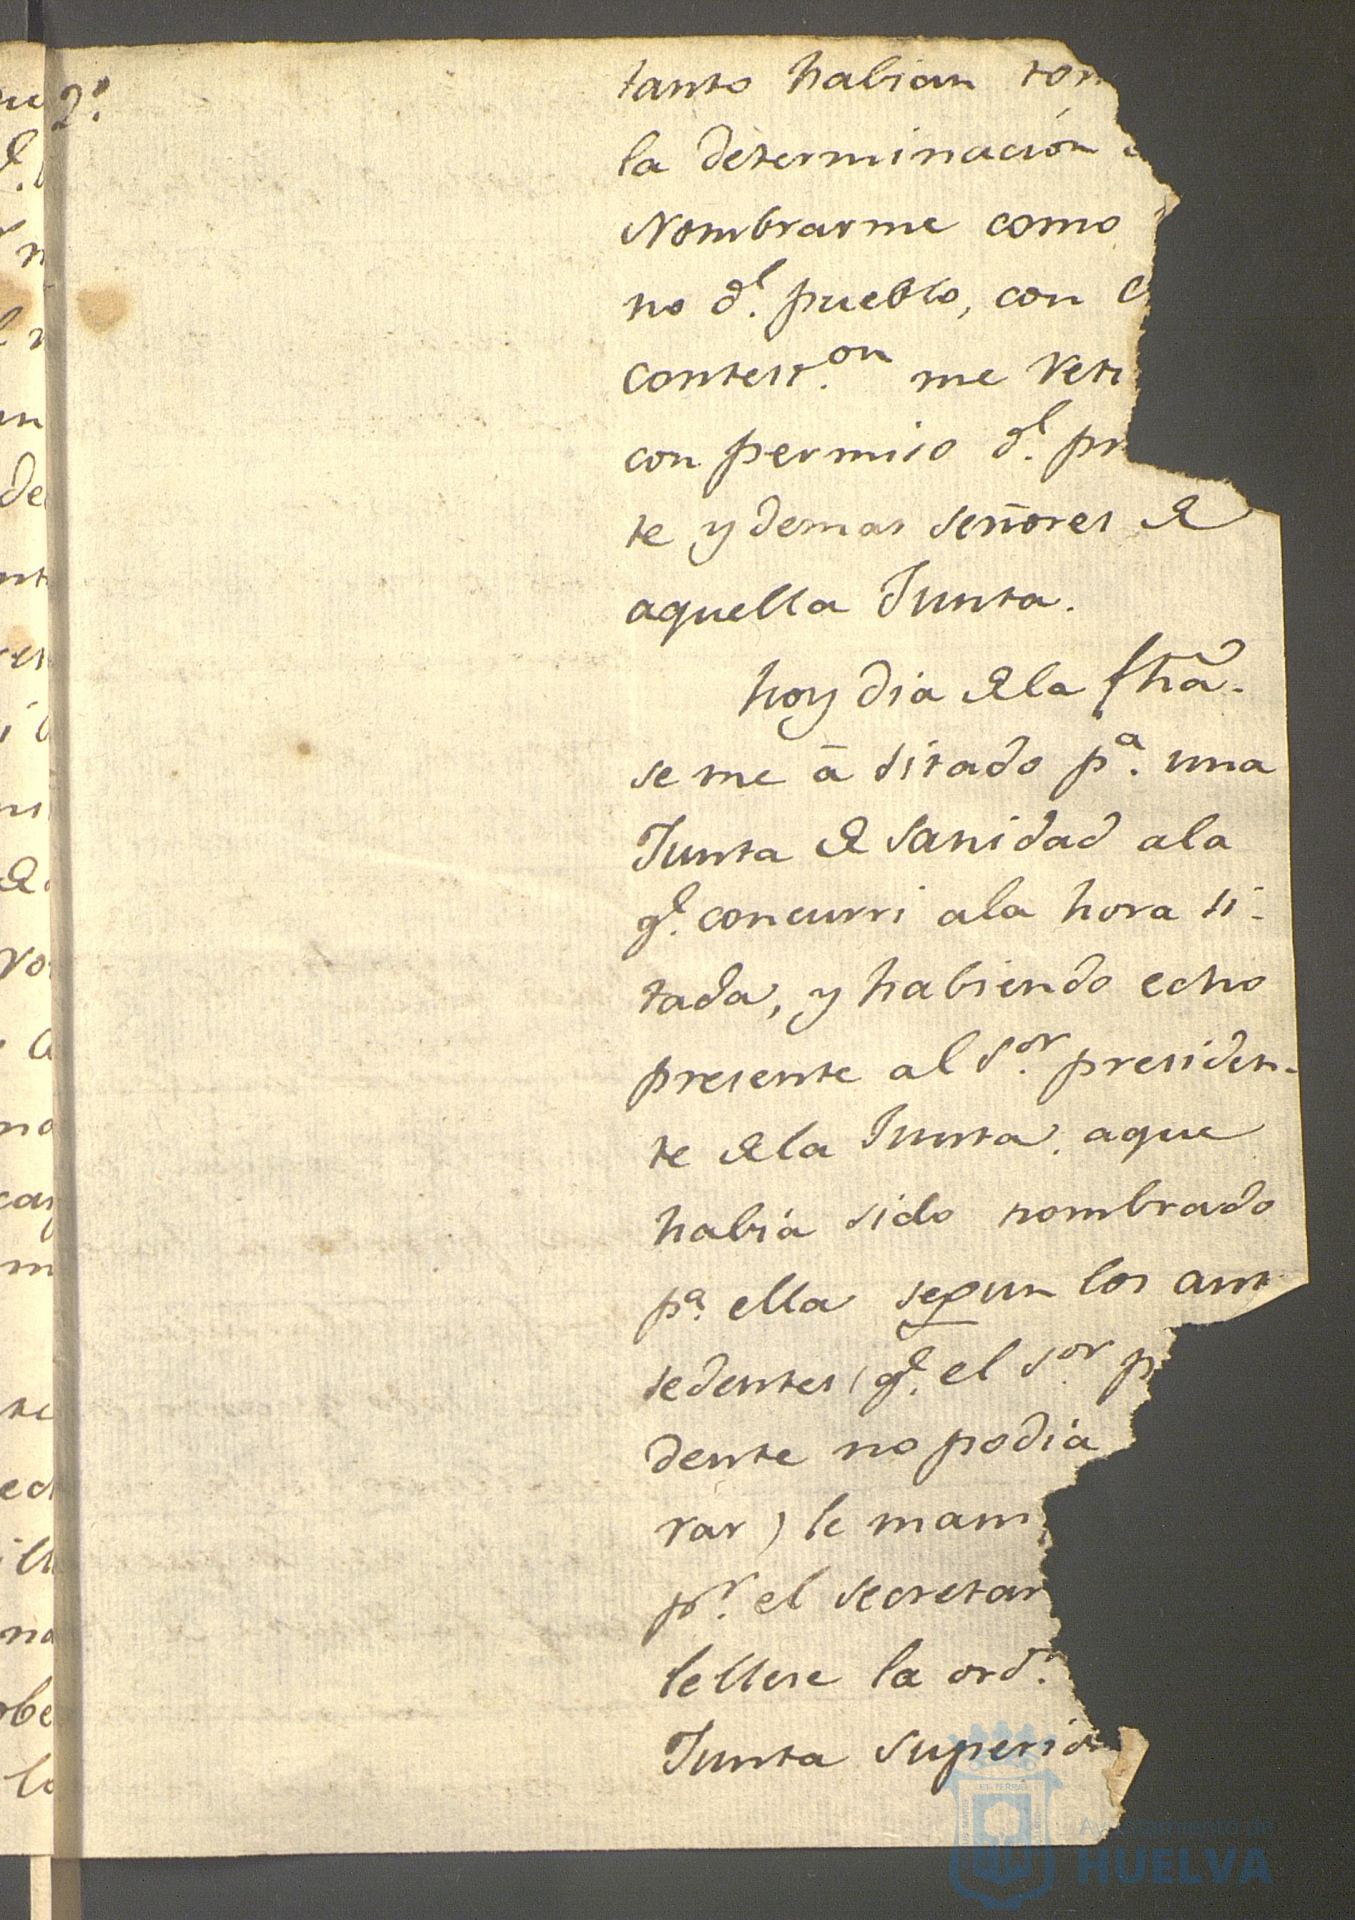 2º
tanto habian tom
la determinación
Nombrarme como
no dl. pueblo, con
contest.on me reti
con permiso dl. pr
te y demas señores de
aquella Junta.
hoy dia de la fha.
se me á sitado pa. una
Junta de sanidad ala
qe. concurri ala hora si-
tada, y habiendo echo
presente al Sor. presiden-
te de la Junta, aque
habia sido nombrado
pa. ella segun los ant
sedentes (qe. el sor. p
dente no podia
rar) le mani
pr. el secretar
lellese la ord.
Junta superior
Ayuntamiento de
HUELVA